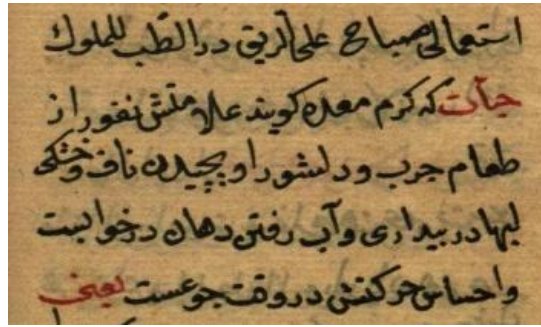 استعمالی صباح علی الریق در الطب للملوک
حیات که کرم معده کویند علامتش نفور از
طعام جرب و دلشورا و پیچیدن ناف و خشکی
لبها در بیداری و آب رفتن دهان در خوابست
و احساس حرکتش در وقت جوعست یعنی